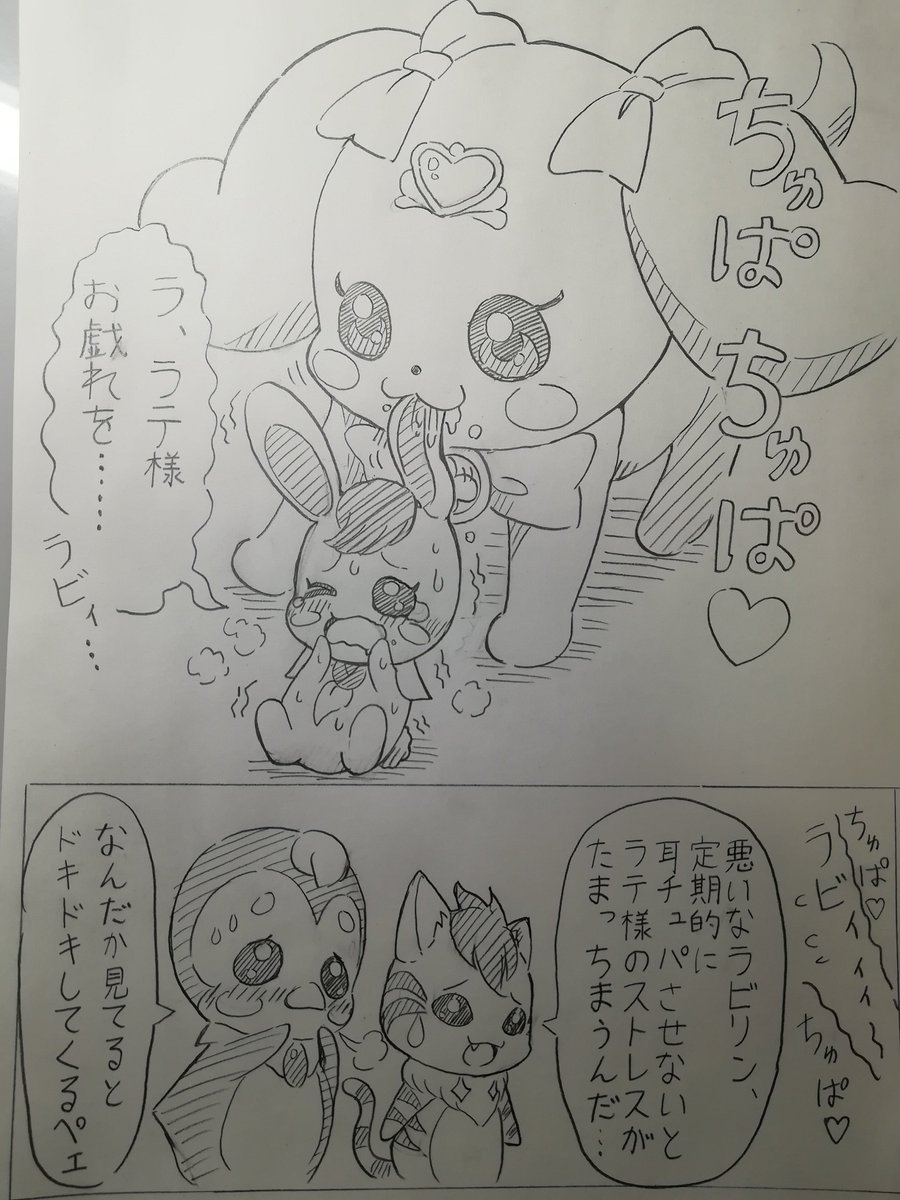 ちゅぱちゅぱ♡
ラ、ラテ様
お戯れを……
ラビィ…
ちゅぱ♡
ラビィィィ〜
ちゅぱ♡
悪いなラビリン、
定期的に
耳チュパさせないと
ラテ様のストレスが
たまっちまうんだ…
なんだか見てると
ドキドキしてくるペエ